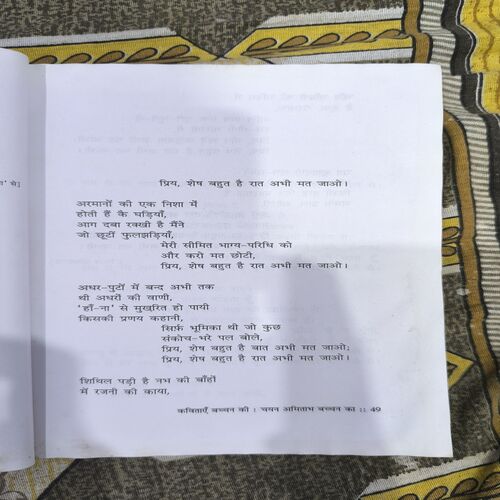 प्रिय, शेष बहुत है रात अभी मत जाओ।
अरमानों की एक निशा में
होती हैं कै घड़ियाँ,
आग दबा रक्खी है मैंने
जो छूटीं फुलझड़ियाँ,
मेरी सीमित भाग्य-परिधि को
और करो मत छोटी,
प्रिय, शेष बहुत है रात अभी मत जाओ।
अधर-पुटों में बन्द अभी तक
थी अधरों की वाणी,
'हाँ-ना' से मुखरित हो पायी
किसकी प्रणय कहानी,
सिर्फ़ भूमिका थी जो कुछ
संकोच-भरे पल बोले,
प्रिय, शेष बहुत है बात अभी मत जाओ;
प्रिय, शेष बहुत है रात अभी मत जाओ।
शिथिल पड़ी है नभ की बाँहों
में रजनी की काया,
कविताएँ बच्चन की : चयन अमिताभ बच्चन का :: 49